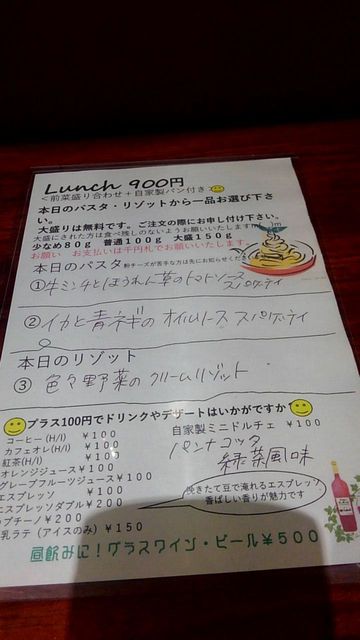 Lunch 900円
<前菜盛り合わせ+自家製パン付き>
本日のパスタ・リゾットから一品お選び下さい。
大盛りは無料です。ご注文の際にお申し付け下さい。
大盛にされた方は食べ残しのないようお願いいたしますm(__)m
少なめ80g 普通100g 大盛150g
お願い お支払いは千円札でお願いいたします。
本日のパスタ 粉チーズが苦手な方は先にお知らせください
①牛ミンチとほうれん草のトマトソース
スパゲティ
②イカと青ネギのオイルソース スパゲッティ
本日のリゾット
③ 色々野菜のクリームリゾット
プラス100円でドリンクやデザートはいかがですか
コーヒー(H/I) ¥100
カフェオレ(H/I) ¥100
紅茶(H/I) ¥100
オレンジジュース¥100
グレープフルーツジュース¥100
エスプレッソ ¥100
エスプレッソダブル¥200
カプチーノ¥200
乳ラテ(アイスのみ)¥150
自家製ミニドルチェ ¥100
パンナコッタ
緑茶風味
挽きたて豆で淹れるエスプレッソ
香ばしい香りが魅力です
昼飲みに!グラスワイン・ビール¥500